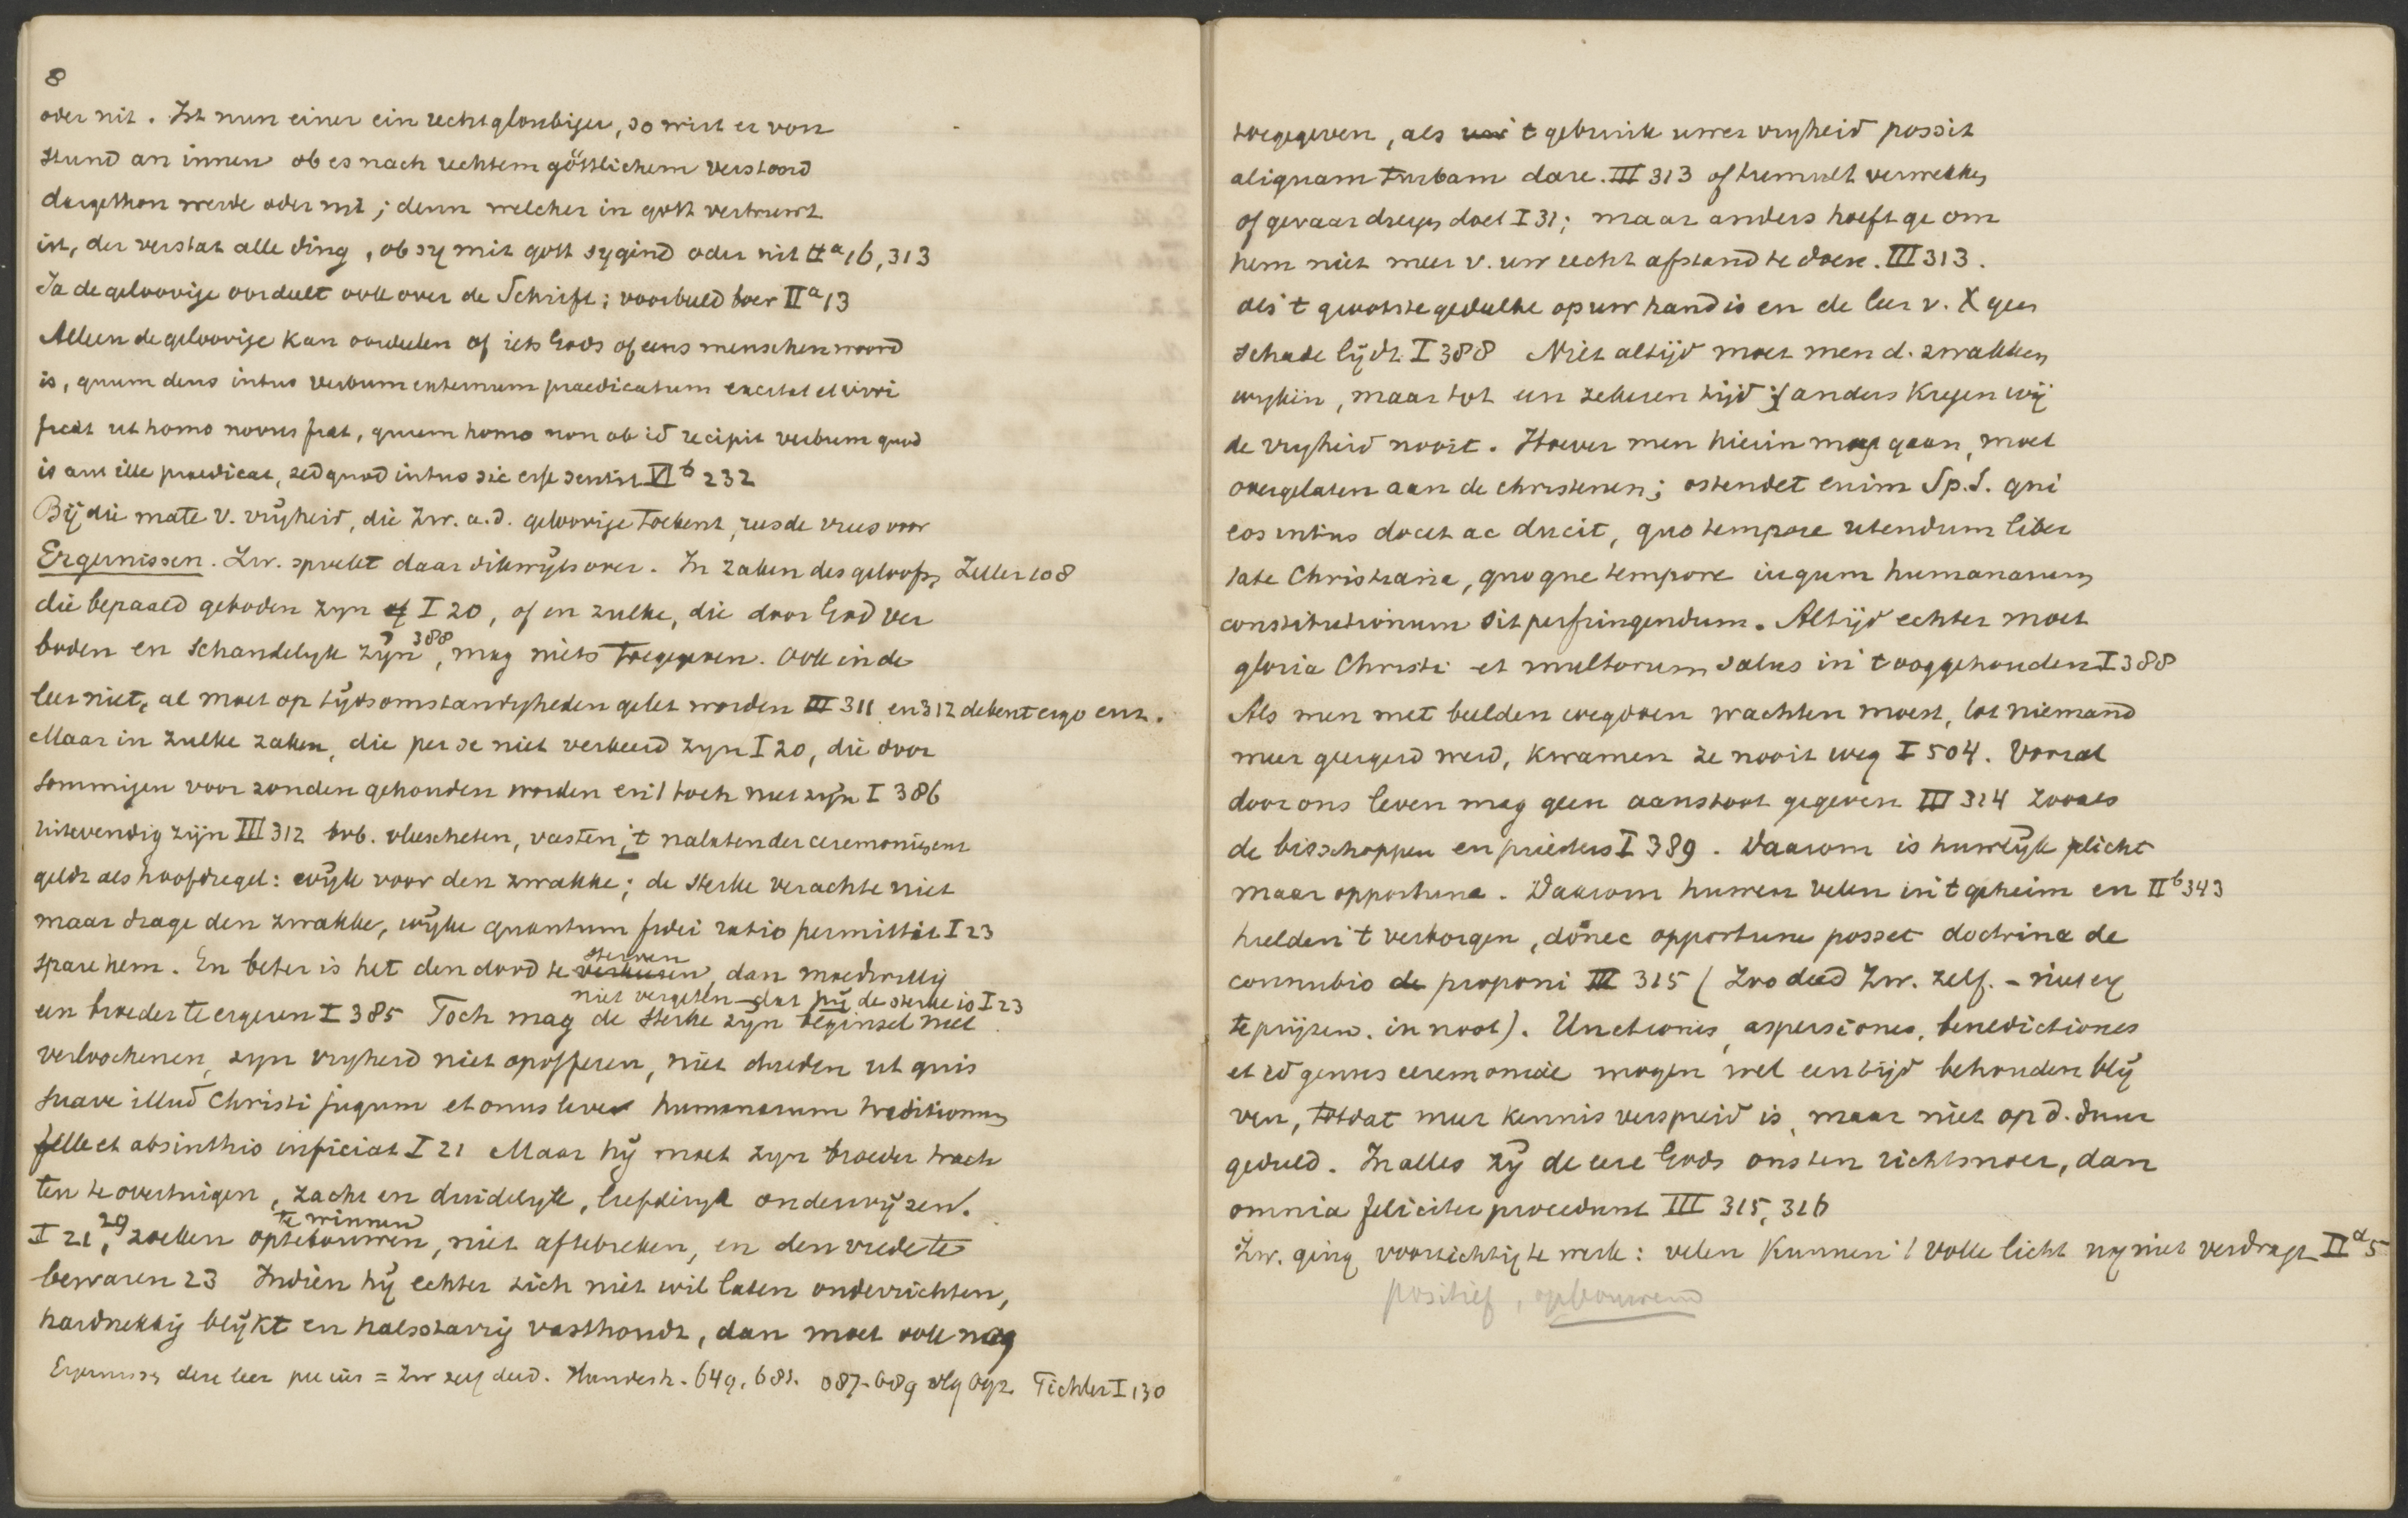 8
oder nit. Ist nun einer ein rechtgloubiger, so wirt er von
stund an innen ob es nach rechtem göttlichem verstand
dargethon werde oder nit; denn welcher in gott vertruwt
ist, der verstat alle ding, ob sy mit gott sygind oder nit IIa 16, 313
Ja de geloovige oordeelt ook over de Schrift; voorbeeld boer IIa 13
Alleen de geloovige kan oordeelen of iets Gods of eens menschen woord
is, quum deus intus verbum externum praedicatum excitat et vivi
ficat ut homo novus fiat, quum homo non ob id recipit verbum quod
is aut ille praedicat, sed quod intus sic esse sentit VIb 232
Bij die mate v. vrijheid, die Zw. a.d. geloovige toekent, rees de vrees voor
Ergernissen. Zw. spreekt daar dikwijls over. In zaken des geloofs, Zeller 108
die bepaald geboden zyn of I 20, of en zulke, die door God ver
boden en schandelyk zijn 388, mag niets toegegeven. Ook in de
leer niet, al moet op tijdsomstandigheden gelet worden III 311 en 312 debent ergo enz.
Maar in zulke zaken, die per se niet verkeerd zyn I 20, die door
sommigen voor zonden gehouden worden en 't toch niet zijn I 386
uitwendig zijn III 312 bvb. vleescheten, vasten, 't nalaten der ceremoniën enz
geldt als hoofdregel: wijk voor den zwakke; de sterke verachte niet
maar drage den zwakke, wyke quantum fidei ratio permittit I 23
spare hem. En beter is het den dood te verkiezen sterven, dan moedwillig
een broeder te ergeren I 385 Toch mag de sterke niet vergeten dat hij de sterke is I 23 zijn beginsel niet
verloochenen, zyn vryheid niet opofferen, niet dulden ut quis
suave illud Christi jugum et onus leve humanarum traditionum
felle et absinthio inficiat I 21 Maar hij moet zyn broeder trach
ten te overtuigen, zacht en duidelyk, liefderijk onderwijzen.
I 21, 29 zoeken te winnen optebouwen, niet aftebreken, en den vrede te
bewaren 23 Indien hij echter zich niet wil laten onderrichten,
hardnekkig blijkt en halsstarrig vasthoudt, dan moet ook nog
Ergernissen dere leer = Zw zelf deed. Hundesh. 649, 681. 687-689 Tichler I 130
toegegeven, als 't gebruik uwer vryheid possit
aliquam turbam dare. III 313 of tumult verwekken
of gevaar dreigen doet I 31; maar anders hoeft ge om
hem niet meer v. uw recht afstand te doen. III 313.
als 't grootste gedeelte op uw hand is en de leer v. X geen
schade lijdt I 388 Niet altijd moet men d. zwakken
wyken, maar tot een zekeren tijd; anders kregen wij
de vryheid nooit. Hoever men hierin mag gaan, moet
overgelaten aan de christenen; ostendet enim Sp.S. qui
eos intus docet ac ducit, quo tempore utendum liber
tate Christiana, quoque tempore iugum humanarum
constitutionum sit perfringendum. Altijd echter moet
gloria Christi et multorum salus in 't oog gehouden I 388
Als men met beelden wegdoen wachten moest, tot niemand
meer geergerd werd, kwamen ze nooit weg I 504. Vooral
door ons leven mag geen aanstoot gegeven III 314 zooals
de bisschoppen en priesters I 389. Daarom is huwelijk plicht
maar opportune. Daarom huwen velen in 't geheim en IIb 343
hielden 't verborgen, donec opportune posset doctrina de
connubio de proponi III 315 (Zoo deed Zw. zelf. - niet
te prijzen. in noot). Unctiones, aspersiones, benedictiones
et id genus ceremoniae mogen wel een tijd behouden blij
ven, totdat meer kennis verspreid is, maar niet op d. duur
geduld. In alles zij de eere Gods ons ten richtsnoer, dan
omnia feliciter procedunt III 315, 316
Zw. ging voorzichtig te werk: velen kunnen 't volle licht nog niet verdragen IIa 5
positief, opbouwend